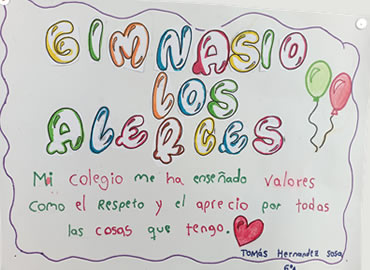 GIMNASIO
LOS
ALERCES
Mi colegio me ha enseñado valores
como el respeto y el aprecio por todas
las cosas que tengo.
Tomás Hernandez Sosa